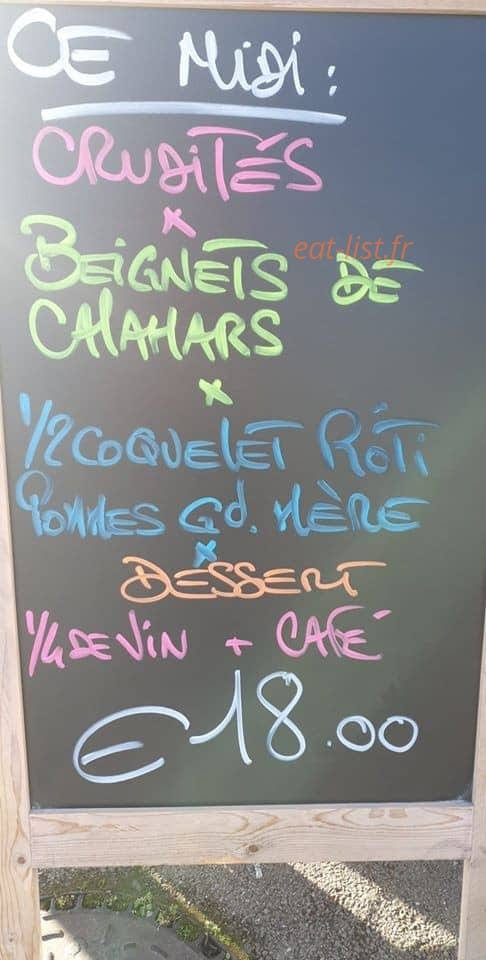 CE MIDI :
CRUDITÉS
x
BEIGNETS DE
eat-list.fr
CALAMARS
x
1/2 COQUELET RÔTI
POMMES Gd. MÈRE
x
DESSERT
1/4 DE VIN + CAFÉ
€ 18.00